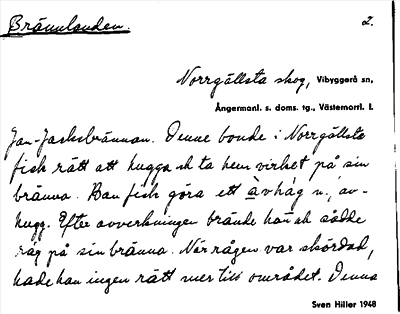 Brännlanden. 2.
Norrgällsta skog, Vibyggerå sn,
Ångermanl. s. doms. tg., Västernorrl. l.
Jan-Jacksbrännan. Denne bonde i Norrgällsta
fick rätt att hugga ok ta hem virket på sin
bränna. Han fick göra ett àvhág n., av-
hugg. Efter avverkningen brände han ok sådde
råg på sin bränna. När rågen var skördad,
hade han ingen rätt mer till området. Denna
Sven Hiller 1948